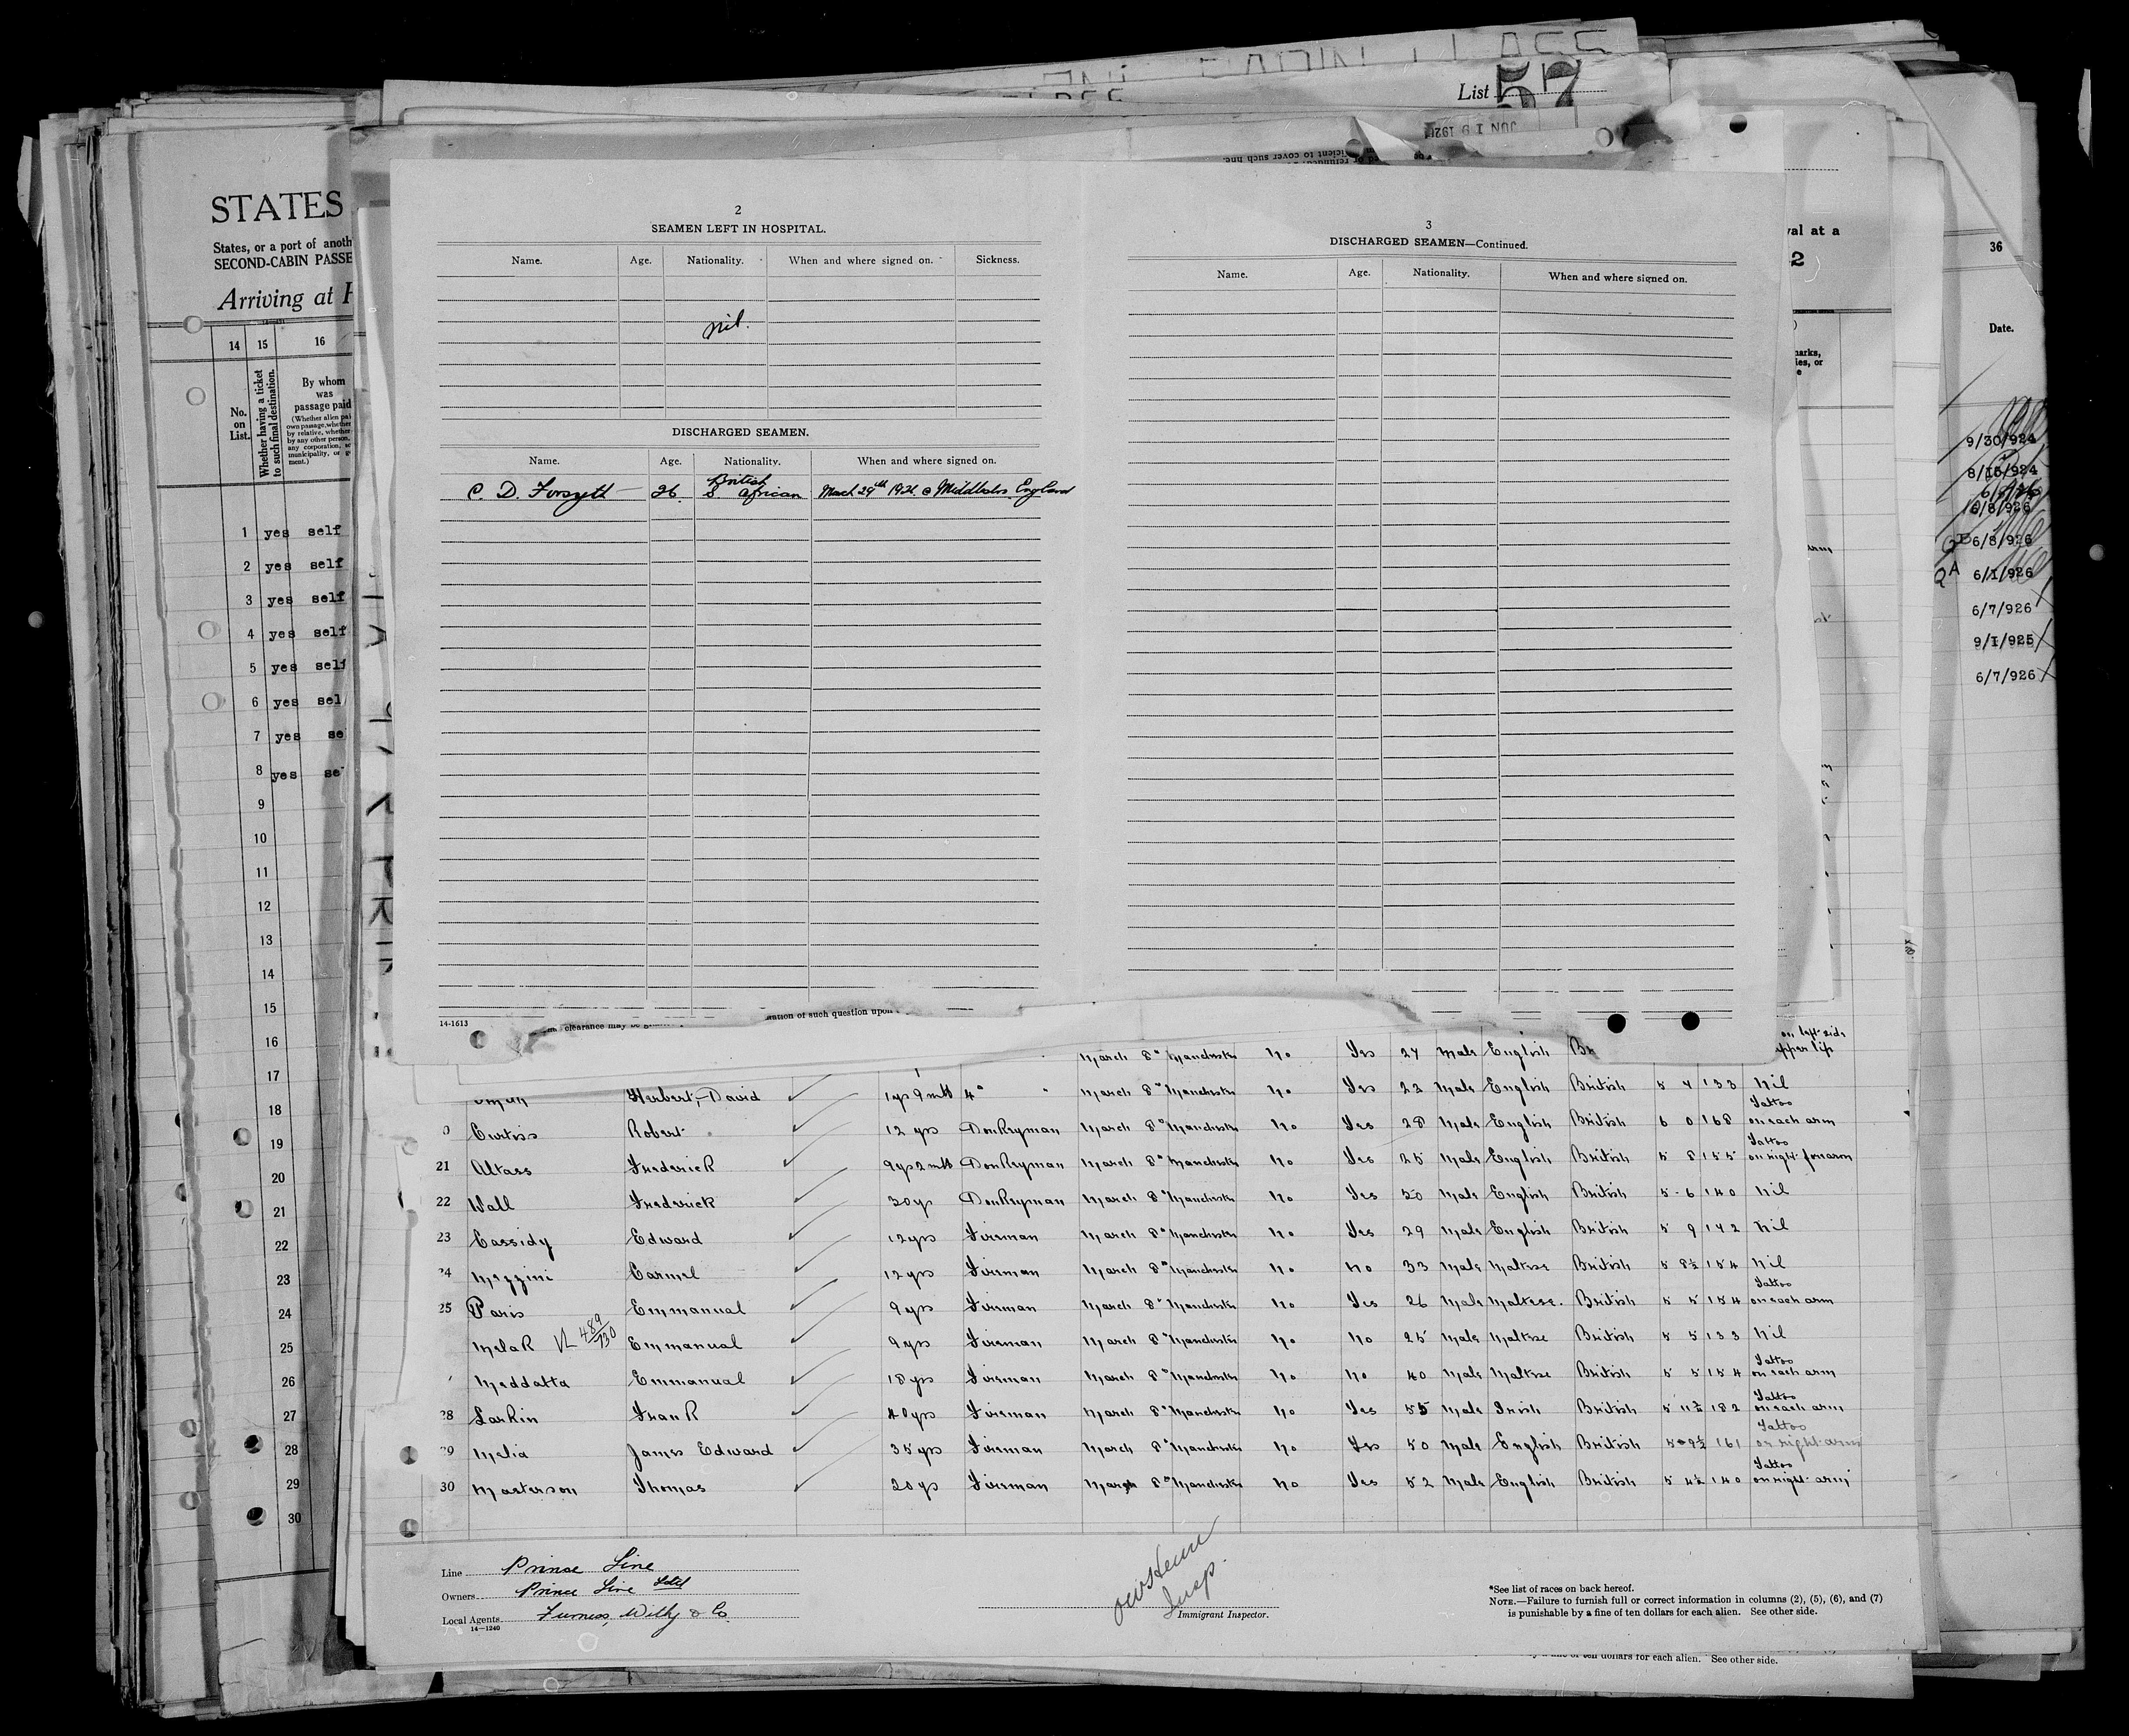 List 57
JUN 19 192
2
SEAMEN LEFT IN HOSPITAL.
Name. Age. Nationality. When and where signed on. Sickness.
nil.
DISCHARGED SEAMEN.
Name. Age. Nationality. When and where signed on.
British
C. D. Forsyth 26 S African March 29th 1926 @ Middlesbro England
14-1613
3
DISCHARGED SEAMEN—Continued.
Name. Age. Nationality. When and where signed on.
STATES
States, or a port of anoth
SECOND-CABIN PASSE
Arriving at
14 15 16
No. on List.
Whether having a ticket to such final destination.
By whom was passage paid
1 yes self
2 yes self
3 yes self
4 yes self
5 yes self
6 yes sel
7 yes se
8 yes se
9
10
11
12
13
14
15
16
17
18
19
20
21
22
23
24
25
26
27
28
29
30
val at a
2
36
Date.
9/30/924
8/15/924
6/8/926
6/8/926
6/1/926
6/7/926
9/1/925
6/7/926
clearance may be
of such question upon
on left side
March 8" Manchester No Yes 27 Male English upper lip
Herbert, David 1yr 9 mths 4" March 8" Manchester No Yes 22 Male English British 5 7 133 Nil
Curtiss Robert 12 yrs Donkeyman March 8" Manchester No Yes 28 Male English British 6 0 168 Tattoo on each arm
21 Altass Frederick 9yrs 2 mths Donkeyman March 8" Manchester No Yes 25 Male English British 5 8 155 Tattoo on right forearm
22 Wall Frederick 30 yr Donkeyman March 8" Manchester No Yes 50 Male English British 5 6 140 Nil
23 Cassidy Edward 12 yrs Fireman March 8" Manchester No Yes 29 Male English British 5 9 142 Nil
24 Mezzini Carmel 12 yrs Fireman March 8" Manchester No No 33 Male Maltese British 5 8½ 154 Nil
25 Paris Emmanual 9 yrs Fireman March 8" Manchester No Yes 26 Male Maltese. British 5 5 154 Tattoo on each arm
Melak VL 489/730 Emmanual 9 yrs Fireman March 8" Manchester No No 25 Male Maltese British 5 5 133 Nil
Meddatta Emmanual 18 yrs Fireman March 8" Manchester No No 40 Male Maltese British 5 5 154 Tattoo on each arm
28 Larkin Frank 40 yrs Fireman March 8" Manchester No Yes 55 Male Irish British 5 11½ 182 Tattoo on each arm
29 Melia James Edward 35 yrs Fireman March 8" Manchester No Yes 50 Male English British 5 9½ 161 Tattoo on right arm
30 Masterson Thomas 20 yrs Fireman March 8" Manchester No Yes 52 Male English British 5 4½ 140 Tattoo on right arm
Line Prince Line
Owners Prince Line Ltd
Local Agents Furness, Withy & Co.
14—1240
Insp.
Immigrant Inspector.
*See list of races on back hereof.
NOTE.—Failure to furnish full or correct information in columns (2), (5), (6), and (7)
is punishable by a fine of ten dollars for each alien. See other side.
ten dollars for each alien. See other side.